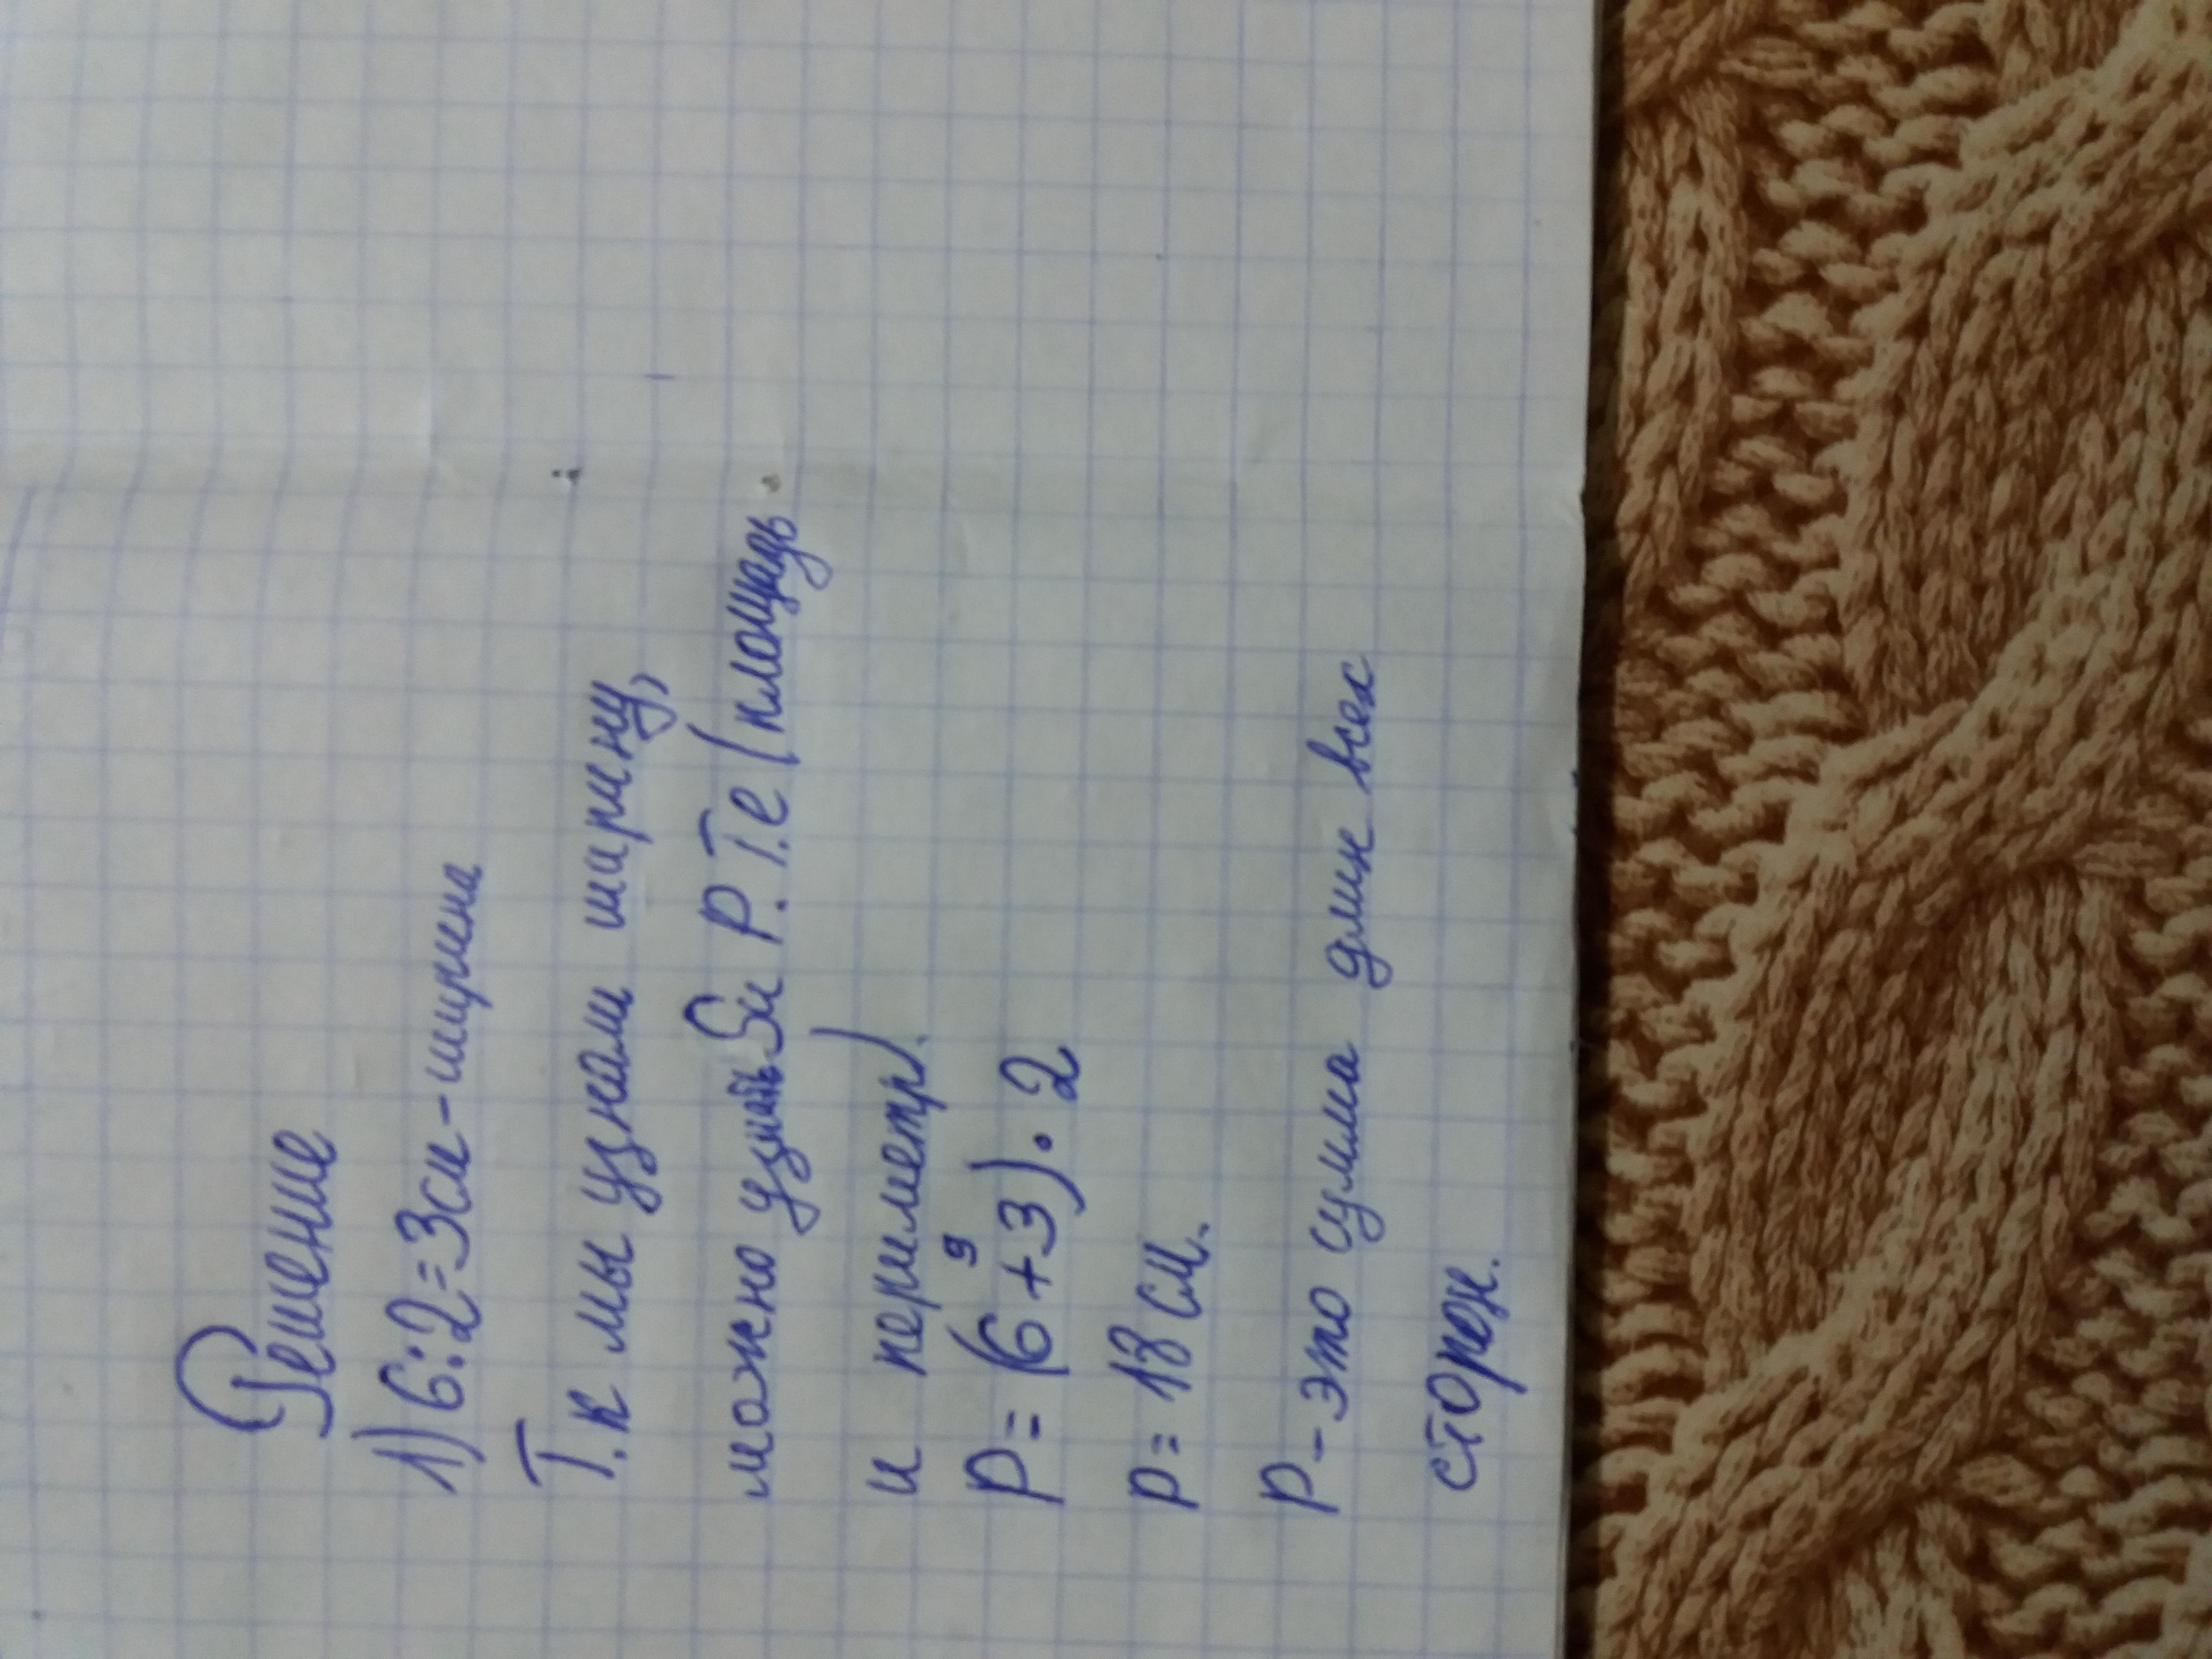 Решение
1) 6:2=3см-ширина
Т.к мы узнали ширину,
можно узнать S и P. Т.е (площадь
и периметр).
9
P=(6+3)·2
P=18 см.
P-это сумма длин всех
сторон.